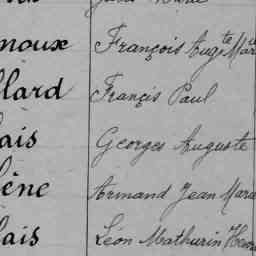 noux François Aug^te Mar
llard Françis Paul
ais Georges Auguste
lène Armand Jean Marie
lais Léon Mathurin Henri